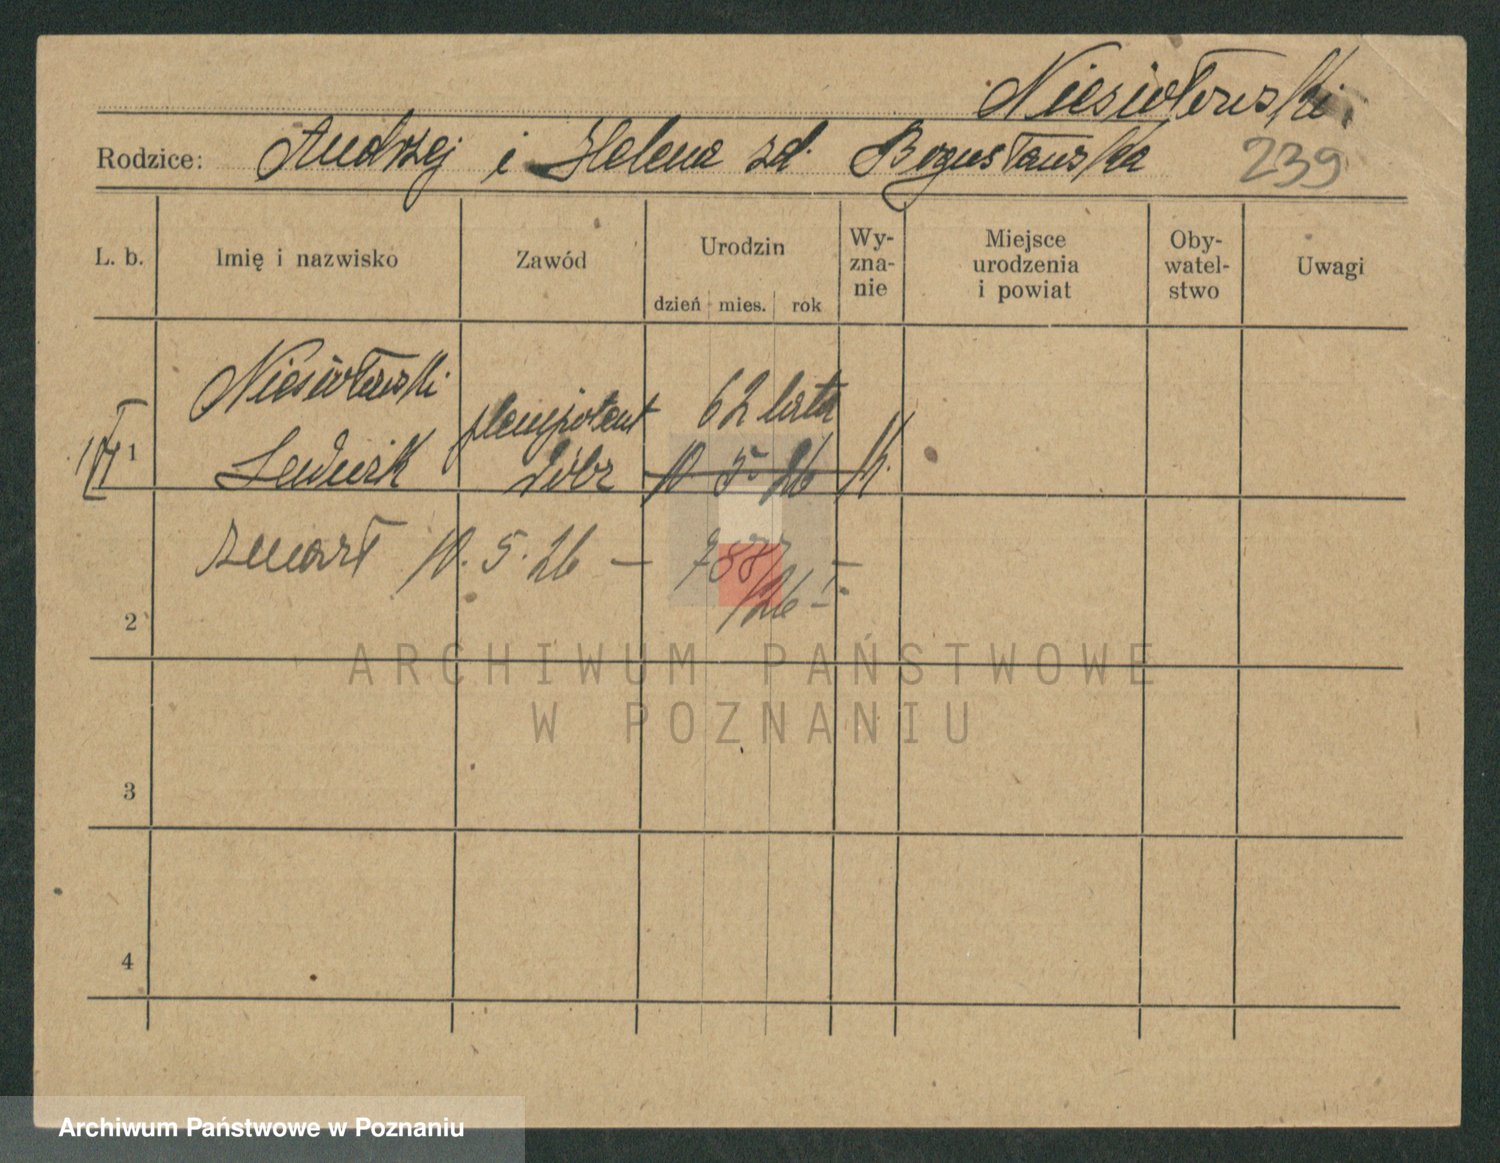 Niesiołowski
Rodzice: Andrzej i Helena zd. Bogusławska 239
L. b. Imię i nazwisko Zawód Urodzin dzień mies. rok Wy-zna-nie Miejsce urodzenia i powiat Oby-watel-stwo Uwagi
Niesiołowski plenipotent 62 lata
1 Ludwik dóbr 10. 5. 26 k.
zmarł 10. 5. 26 — 788/26 I.
2
ARCHIWUM PAŃSTWOWE
W POZNANIU
3
4
Archiwum Państwowe w Poznaniu